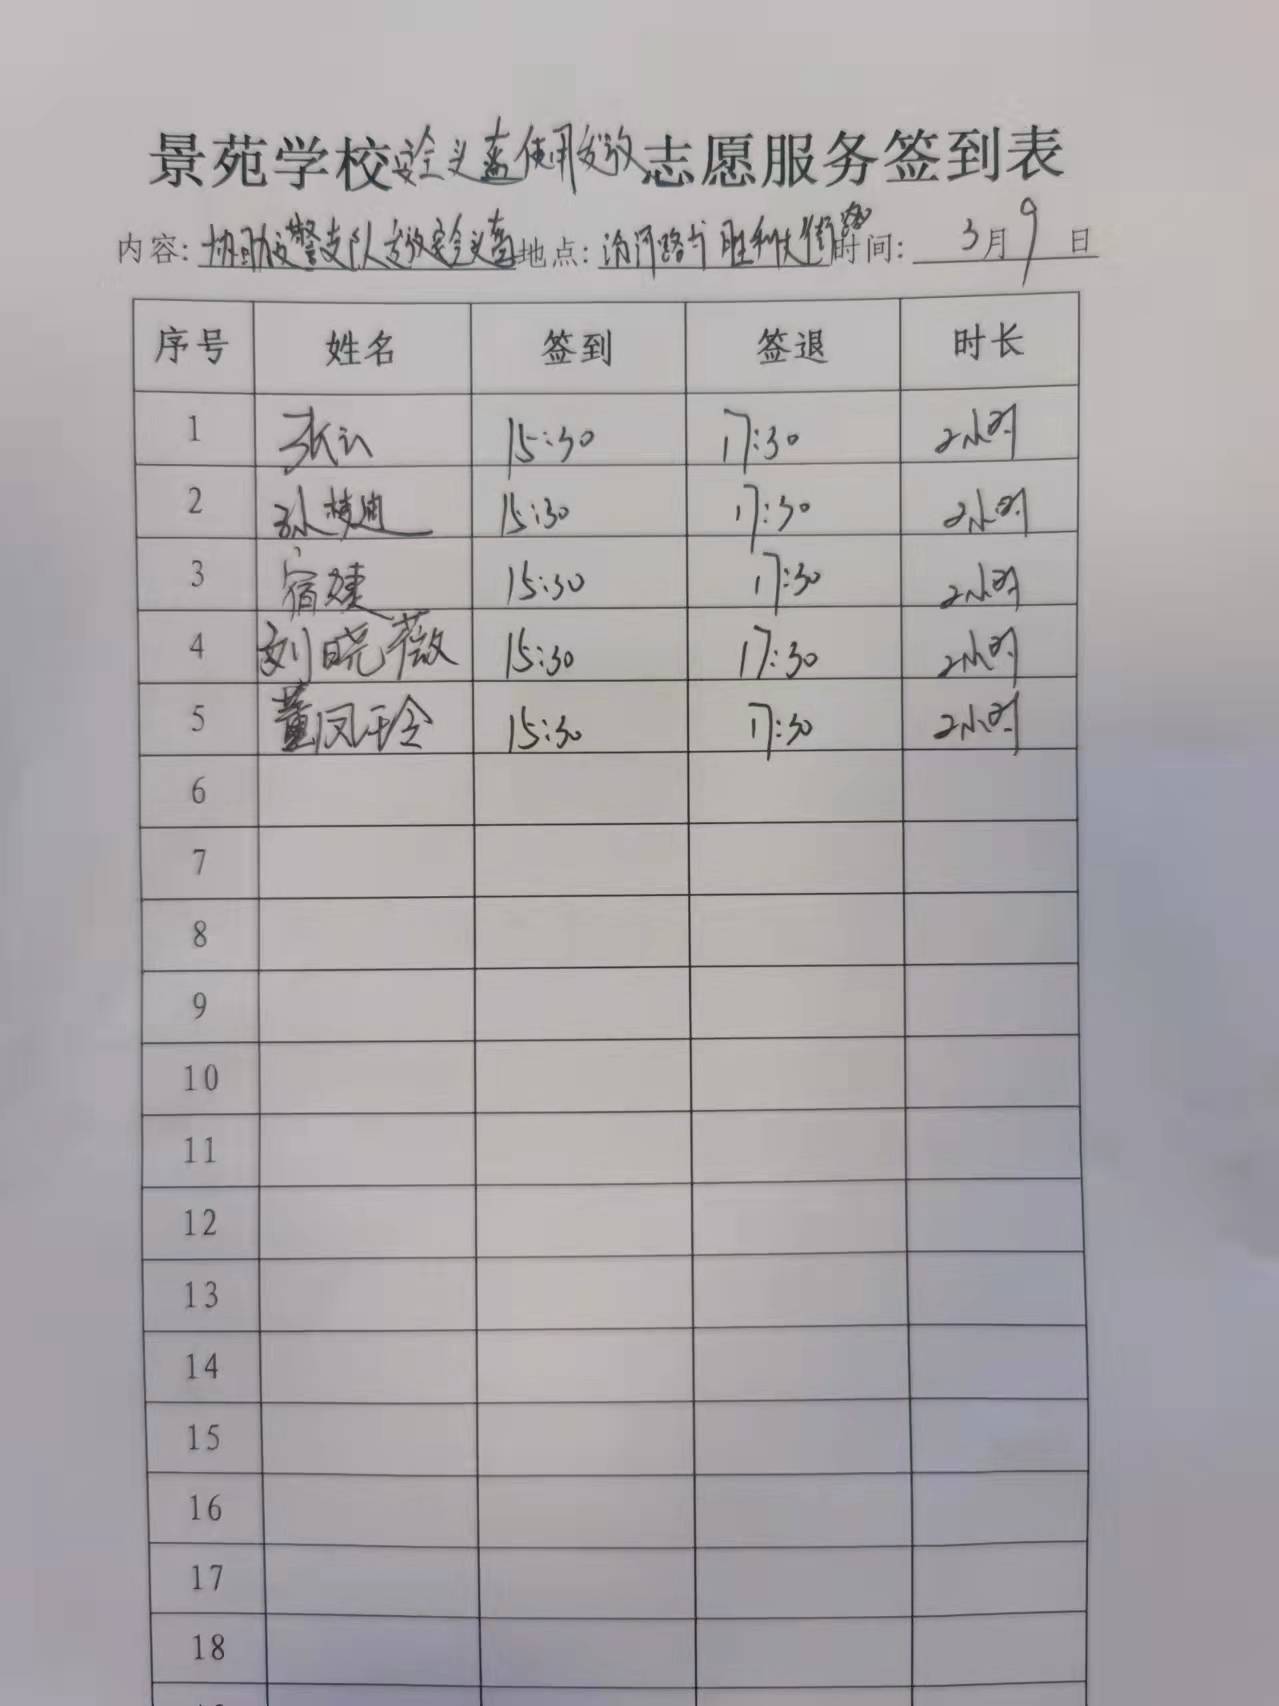 景苑学校安全头盔使用发放志愿服务签到表
内容: 协助交警支队发放安全头盔 地点: 汾河路与胜利大街路 时间: 3月9日
序号 姓名 签到 签退 时长
1 张云 15:30 17:30 2小时
2 孙 15:30 17:30 2小时
3 宿婕 15:30 17:30 2小时
4 刘晓薇 15:30 17:30 2小时
5 董凤玲 15:30 17:30 2小时
6
7
8
9
10
11
12
13
14
15
16
17
18